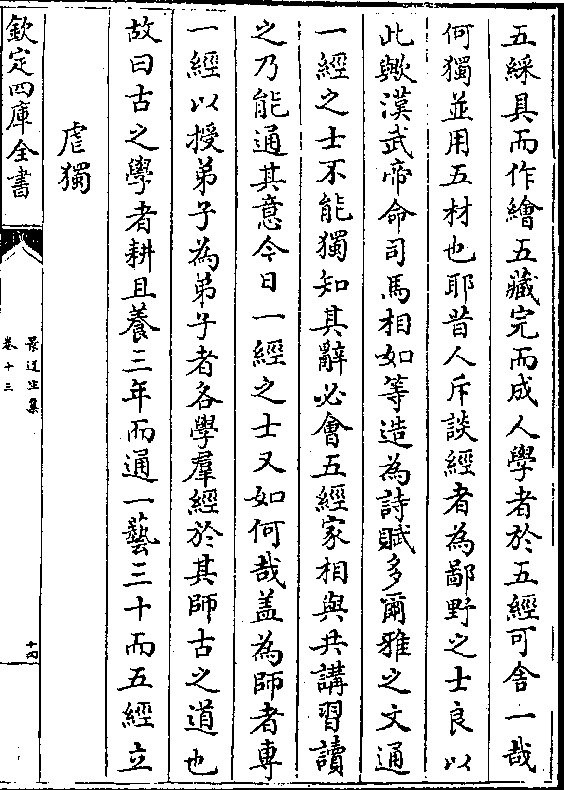 五綵具而作繪五藏完而成人學者於五經可舍一哉
何獨並用五材也耶昔人斥談經者為鄙野之士良以
此歟漢武帝命司馬相如等造為詩賦多爾雅之文通
一經之士不能獨知其辭必會五經家相與共講習讀
之乃能通其意今日一經之士又如何哉盖為師者專
一經以授弟子為弟子者各學羣經於其師古之道也
故曰古之學者耕且養三年而通一藝三十而五經立
虐獨
欽定四庫全書
景迂生集
卷十三
十四